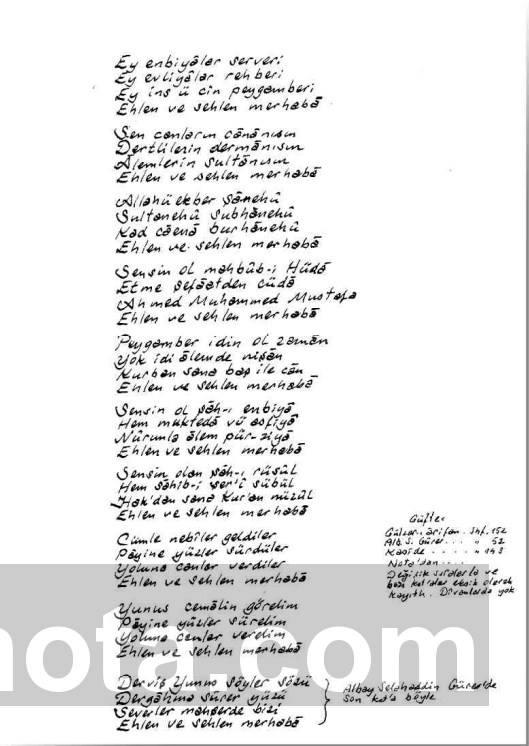 Ey enbiyâlar serveri
Ey evliyâlar rehberi
Ey ins ü cin peygamberi
Ehlen ve sehlen merhabâ
Sen canların cânânısın
Dertlilerin dermânısın
Âlemlerin Sultânısın
Ehlen ve sehlen merhabâ
Allahü ekber şânehû
Sultanehû Subhânehû
Kad câenâ burhânehû
Ehlen ve sehlen merhabâ
Sensin ol mahbûb-i Hüdâ
Etme şefâatden cüdâ
Ahmed Muhammed Mustafa
Ehlen ve sehlen merhabâ
Peygamber idin ol zamân
Yok idi âlemde nişân
Kurban sana baş ile cân
Ehlen ve sehlen merhabâ
Sensin ol şâh-ı enbiyâ
Hem muktedâ vü asfiyâ
Nûrunla âlem pür-ziyâ
Ehlen ve sehlen merhabâ
Sensin olan şâh-ı rüsül
Hem sâhib-i şer'i sübül
Hak'dan sana Kur'an nüzül
Ehlen ve sehlen merhabâ
Cümle nebîler geldiler
Pâyine yüzler sürdüler
Yoluna canlar verdiler
Ehlen ve sehlen merhabâ
Yunus cemâlin görelim
Pâyine yüzler sürelim
Yoluna canlar verelim
Ehlen ve sehlen merhabâ
Derviş Yunus söyler sözü
Dergâhına sürer yüzü
Severler mahşerde bizi
Ehlen ve sehlen merhabâ
Albay Selahaddin Gürer'de
Son kıt'a böyle
Güfte:
Gülzar-ı ârifan. Shf. 152
Alb. S. Gürer . . . " 52
Kaside . . . . " 143
Nota'dan . . . .
Değişik sıralarla ve
bazı kıt'alar eksik olarak
kayıtlı. Divanlarda yok
nota.com